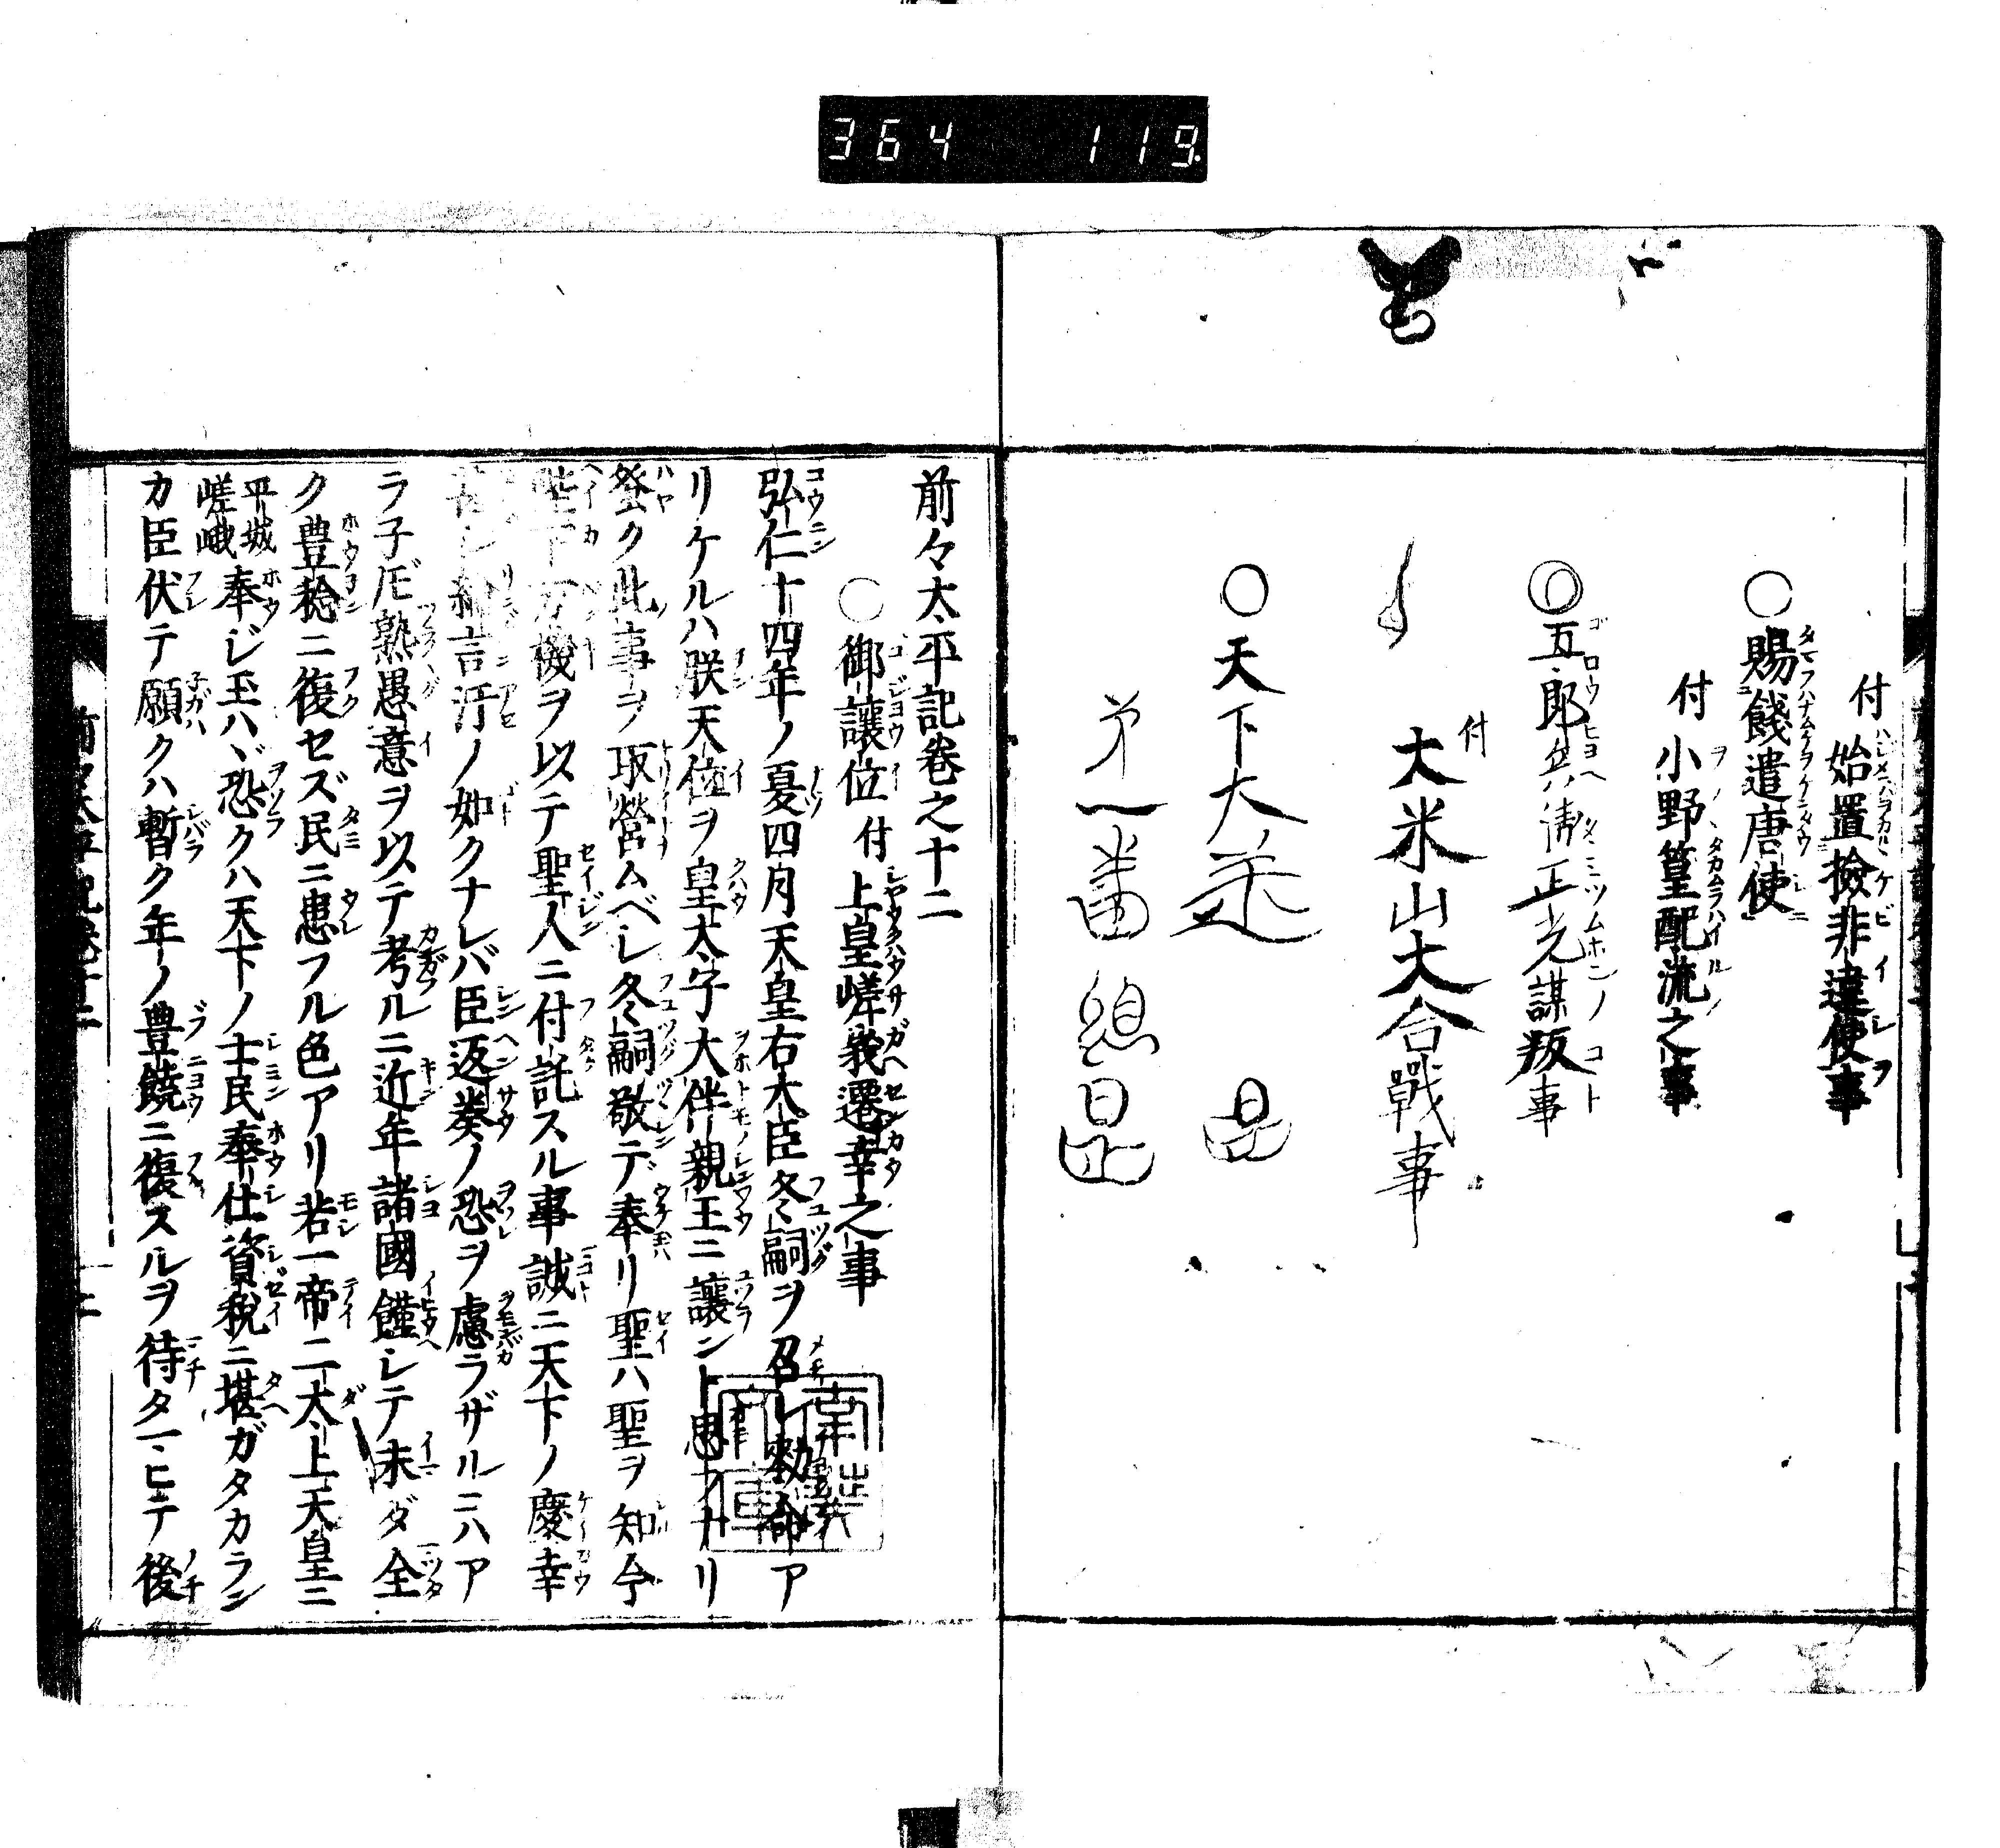 364 119
付始置撿非違使事
○賜餞遣唐使
付小野篁配流之事
◎五郎兵衛正光謀叛事
付
大米山大合戰事
○天下大
第一番
前々太平記巻之十二
○御讓位付上皇嵯峨遷幸之事
弘仁十四年ノ夏四月天皇右大臣冬嗣ヲ召レ勅命ア
リケルハ朕天位ヲ皇太子大伴親王ニ讓ント思ナリ
發ク此事ヲ取營ムベレ冬嗣敬デ奉リ聖ハ聖ヲ知今
陛下万機ヲ以テ聖人ニ付託スル事誠ニ天下ノ慶幸
レ綸言汗ノ如クナレバ臣返奏ノ恐ヲ慮ラザルニハア
ラ子𪜈熟愚意ヲ以テ考ルニ近年諸國饉レテ未ダ全
ク豊稔ニ復セズ民ニ患フル色アリ若一帝二太上天皇ニ
平城
嵯峨
奉レ玉ハヾ恐クハ天下ノ士民奉仕資税ニ堪ガタカラン
カ臣伏テ願クハ暫ク年ノ豊饒ニ復スルヲ待タ一ヒテ後